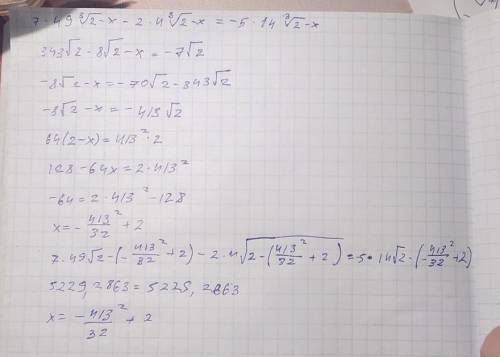 7·49 ∛2-x - 2·4 ∛2-x = -5·14 ∛2-x
343√2 - 8√2-x = -7√2
-8√2-x = -70√2-343√2
-8√2-x = -413√2
64(2-x) = 413²·2
128-64x = 2·413²
-64 = 2·413²-128
x = - 413²/32 + 2
7·49√2-(-413²/32+2) - 2·4√2-(413²/32+2) = 5·14√2-(-413²/32+2)
5229,2863 = 5229,2863
x = -413²/32 + 2